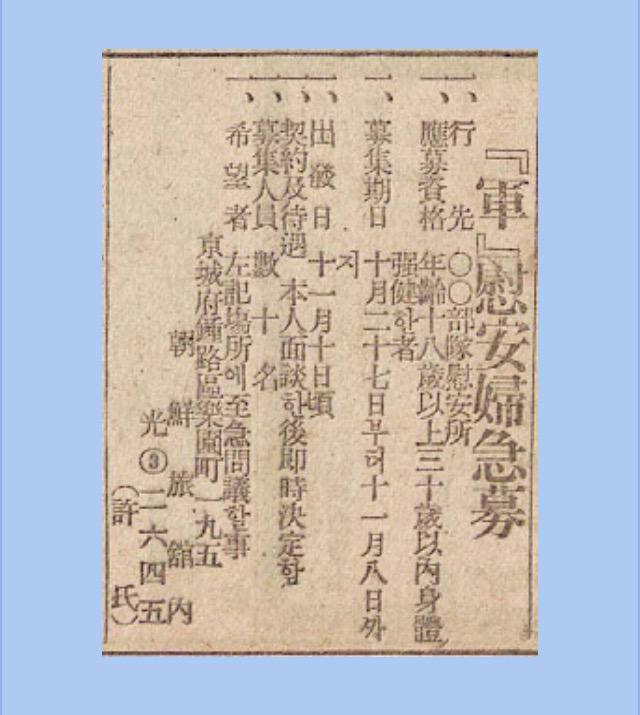 『軍』慰安婦急募
一、行先 〇〇部隊慰安所
一、應募資格 年齡十八歲以上三十歲以內身體
强健한者
一、募集期日 十月二十七日부터十一月八日까
지
一、出發日 十一月十日頃
一、契約及待遇 本人面談한後即時決定함
一、募集人員 數十名
一、希望者 左記場所에至急問議한事
京城府鍾路區樂園町一九五
朝鮮旅舘內
光③二六四五
(許氏)